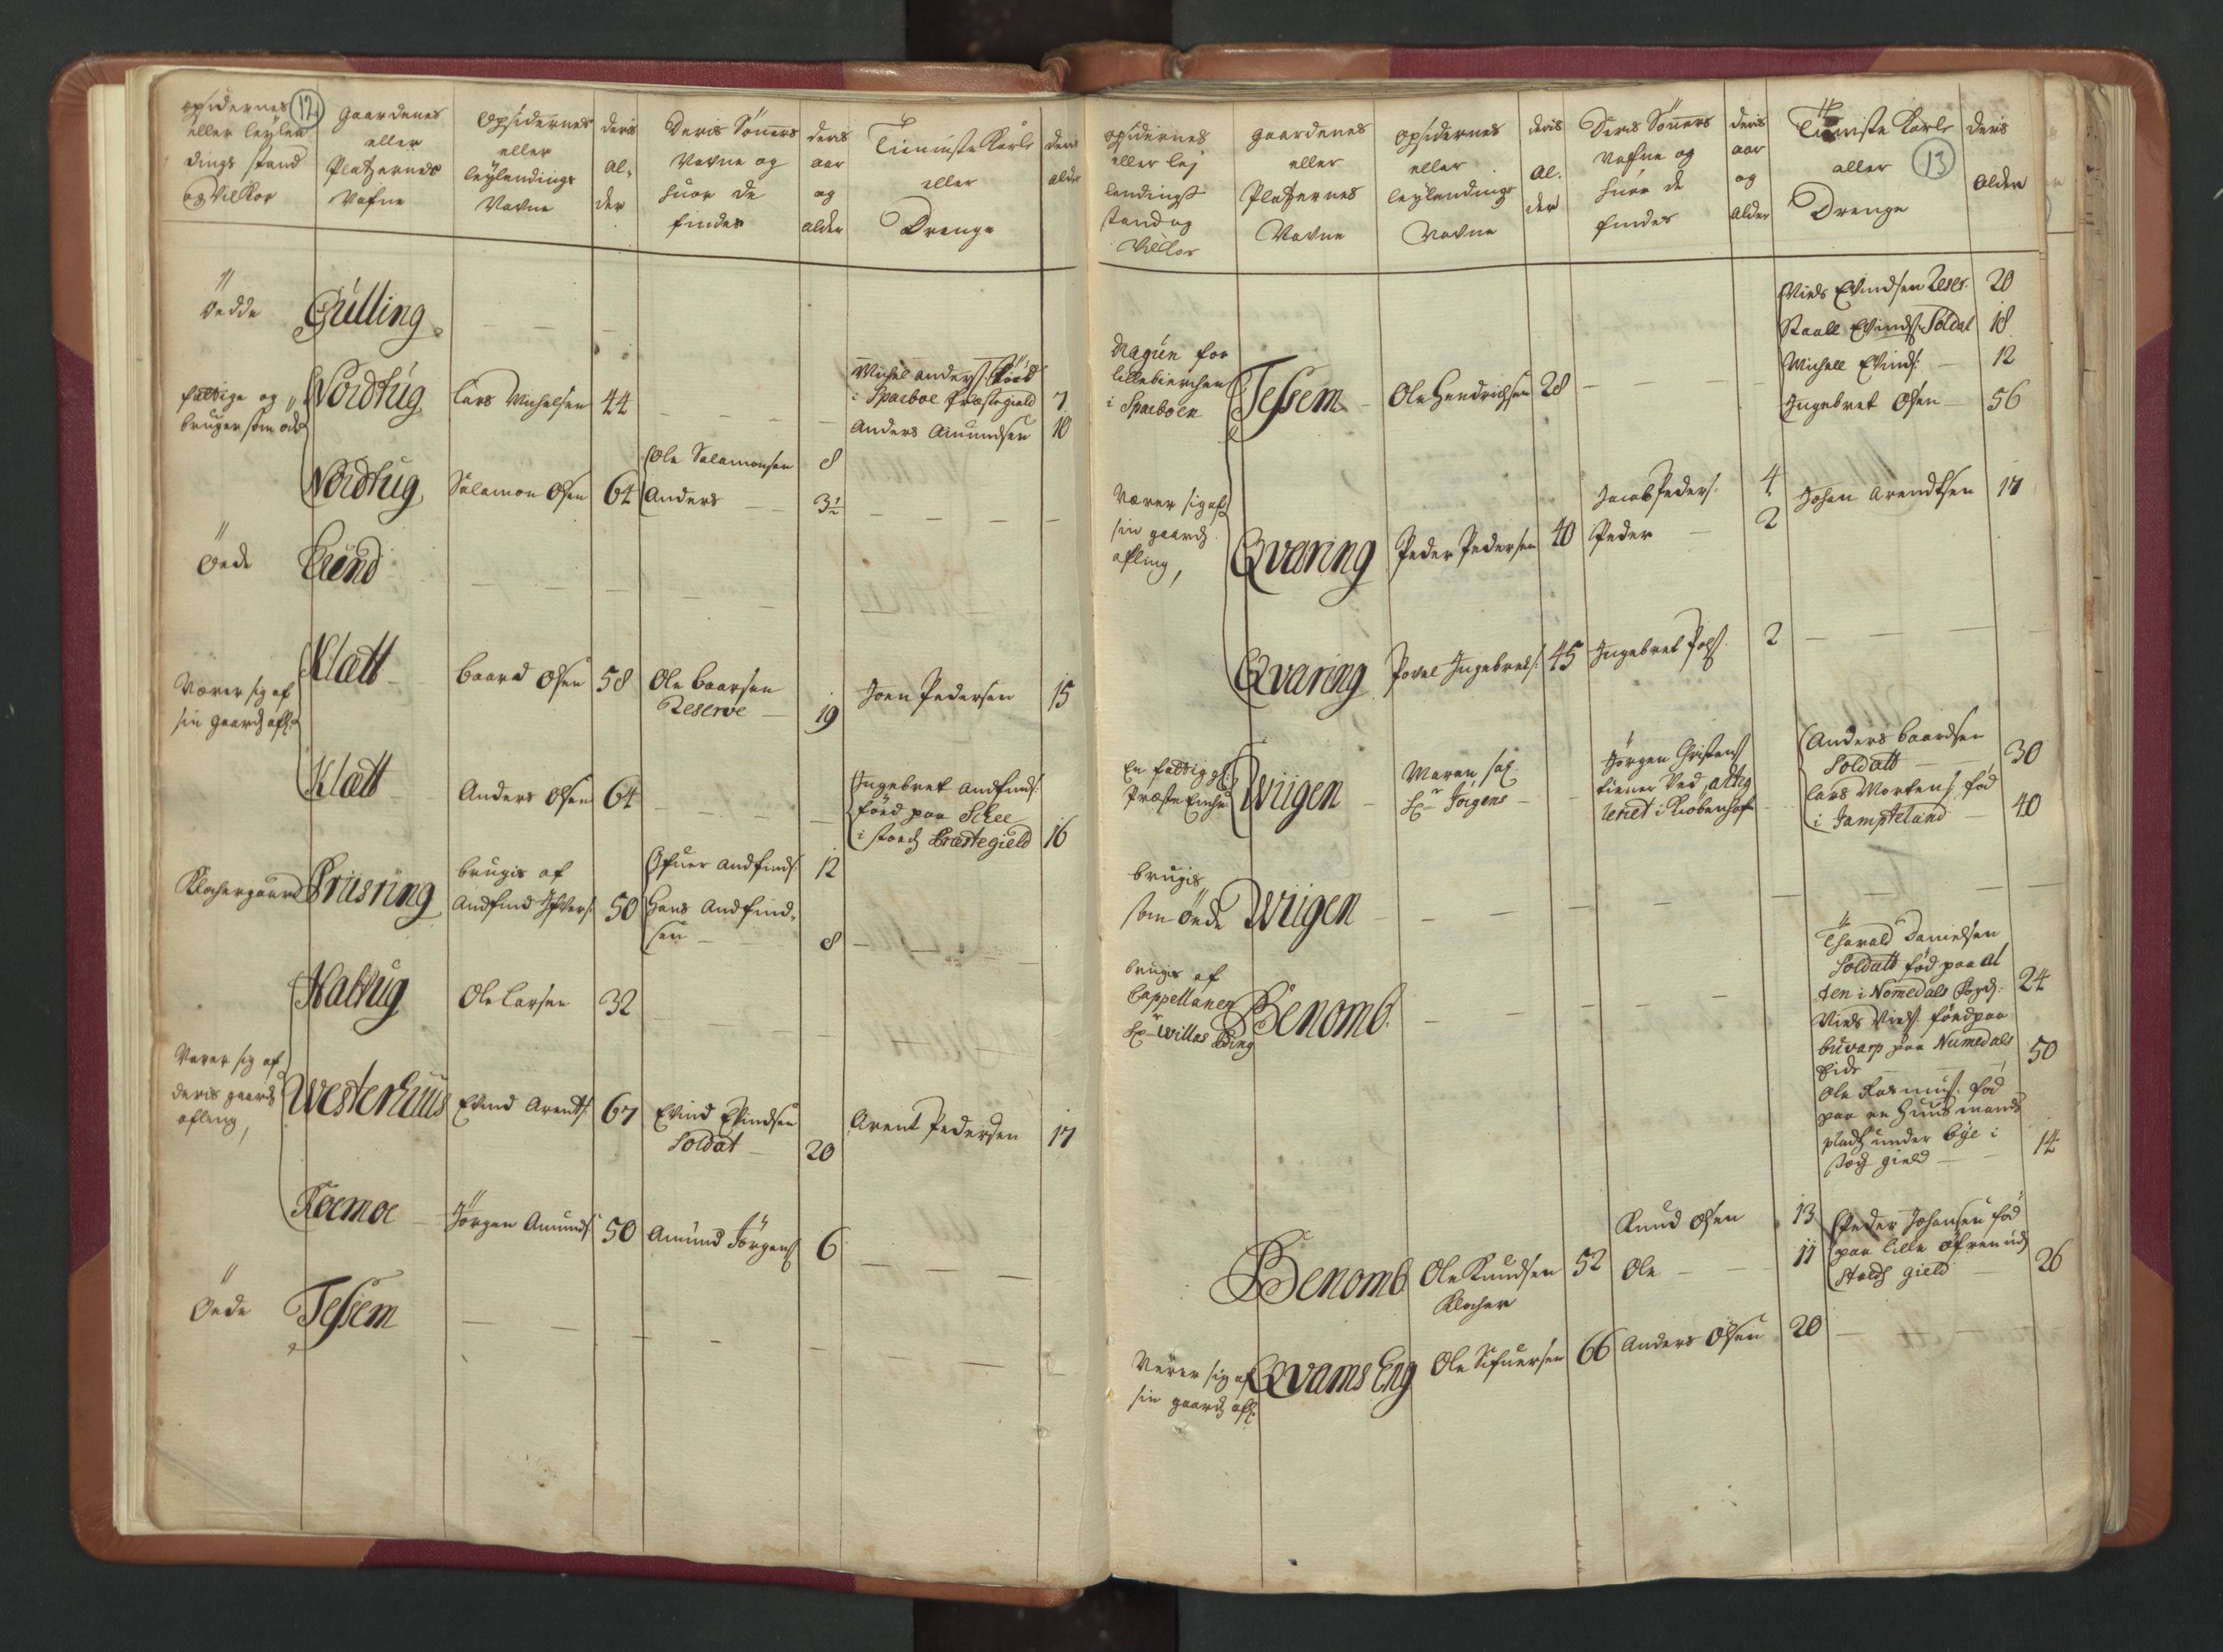 12
opsidernes eller leylendings stand og Vilkor
Gaardenes eller Pladzernes Nafne
Opsidernes eller leylendings Nafne
deris Alder
Deris Sönners Nafne og huor de findes
deris aar og alder
Tienniste Karle eller Drenge
deris alder
Öedde Gulling
fattige og bruger som öde Nordtug Lars Michelsen 44
Michel Anders: föed
i Sparboe Præstegield 7
Anders Amundsen 10
Nordtug Salamon Olsen 64 Ole Salamonsen 8
Anders 3½
Öede Lund
Nærer sig af sin gaardz afl: Klætt Baard Olsen 58 Ole Baarsen
Reserve 19 Joen Pedersen 15
Klætt Anders Olsen 64 Ingebret Andfinds:
föed paa Schee
i stoedz Præstegield 16
Klochergaard Brusring brugis af
Andfind Ifvers: 50 Ifuer Andfinds: 12
Hans Andfind-
sen 8
Haltug Ole Larsen 32
Nærer sig af deris gaardz afling, Westerhuus Evind Arents: 67 Evind Evindsen
Soldat 20 Arent Pedersen 17
Roemoe Jörgen Amunds: 50 Amund Jörgens: 6
Öede Tessem
13
opsidernes eller leylendings stand og Vilkor
Gaardenes eller Pladzernes Nafne
opsidernes eller leylendings Nafne
deris Al. der
Deris Sönners Nafne og huor de findes
deris aar og alder
Tieniste Karle eller Drenge
deris Alder
Niels Evindsen Reser: 20
Staale Evinds: Soldat 18
Michell Evinds: 12
Ingebret Olsen 56
Dragun for
lillebierchen
i Sparboen Tessem Ole Hendrichsen 28
Nærer sig af
sin gaardz
afling, Qvaring Peder Pedersen 40 Jacob Peders: 4
Peder 2
Johan Arendtsen 17
Qvaring Povel Ingebrets: 45 Ingebret Pols: 2
En fattig
Præste Enche Wiigen Maren sal.
Hr. Jörgens
Jörgen Christens:
tiener Ved Artig
leriet i Kiöbenhafn
Anders Baardsen
Soldatt 30
Lars Mortens: föd
i Jampteland 40
brugis
som öede Wiigen
brugis af
Cappellanen
Hr. Willas Benomb.
Tharald Danielsen
Soldatt föd paa Al
ten i Nomedals 24
Niels Niels: föed paa
Buvarp paa Numedals
Eide 50
Ole Rasmus: föd
paa en Huusmands
pladz under Bye i
stodz gield 14
Benomb Ole Knudsen
Klocher 52 Knud Olsen 13
Ole 11
Peder Johansen föd
paa lille Öfren udj
stodz gield 26
Nærer sig af
sin gaardz afl: Qvams Eng Ole Sifuersen 66 Anders Olsen 20